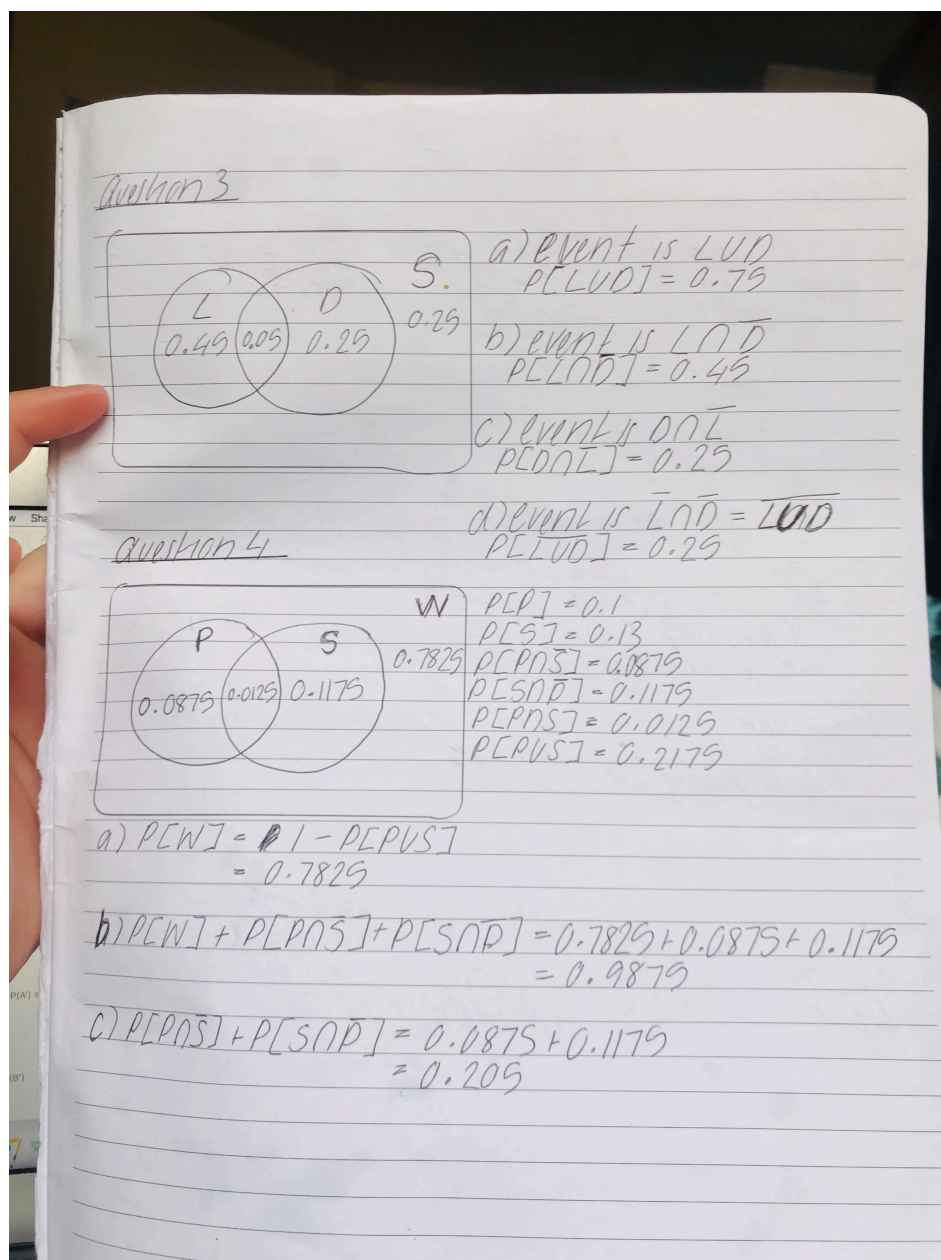 Question 3
L
D
S.
0.45
0.05
0.25
0.25
a) event is L∪D
P[L∪D] = 0.75
b) event is L∩D̅
P[L∩D̅] = 0.45
c) event is D∩L̅
P[D∩L̅] = 0.25
d) event is L̅∩D̅ = L̅∪̅D̅
P[L̅∪̅D̅] = 0.25
Question 4
P
S
W
0.0875
0.0125
0.1175
0.7825
P[P] = 0.1
P[S] = 0.13
P[P∩S̅] = 0.0875
P[S∩P̅] = 0.1175
P[P∩S] = 0.0125
P[P∪S] = 0.2175
a) P[W] = 1 - P[P∪S]
= 0.7825
b) P[W] + P[P∩S̅] + P[S∩P̅] = 0.7825 + 0.0875 + 0.1175
= 0.9875
c) P[P∩S̅] + P[S∩P̅] = 0.0875 + 0.1175
= 0.205
w Sha
P(A') =
(B')